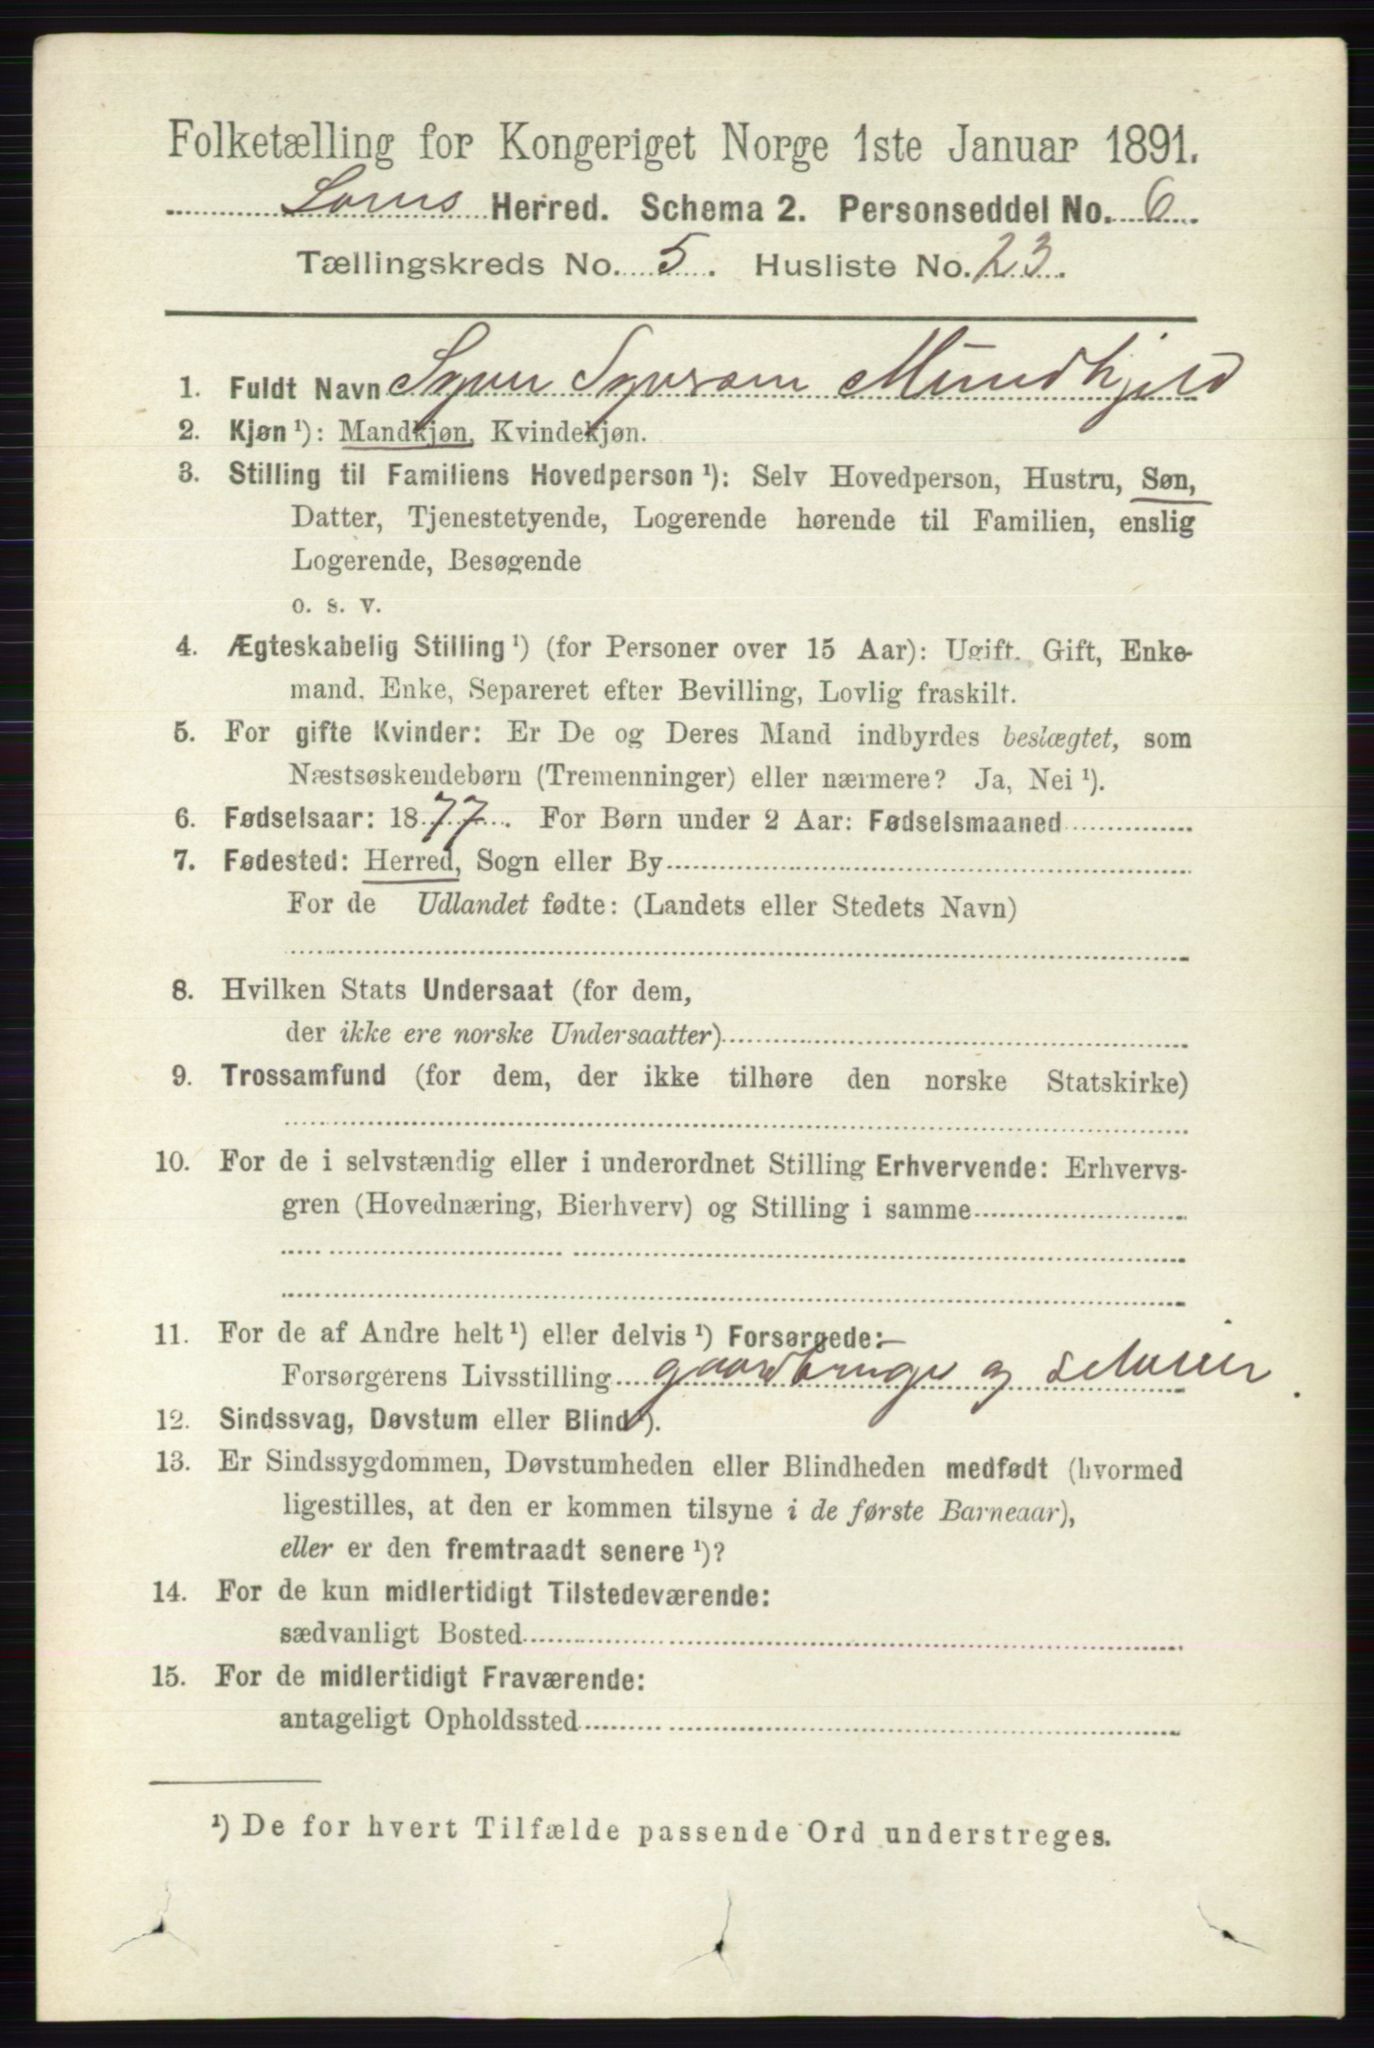 Folketælling for Kongeriget Norge 1ste Januar 1891.
Loms Herred. Schema 2. Personseddel No. 6.
Tællingskreds No. 5. Husliste No. 23.
1. Fuldt Navn Syver Syversen Mundhjeld
2. Kjøn ¹): Mandkjøn, Kvindekjøn.
3. Stilling til Familiens Hovedperson ¹): Selv Hovedperson, Hustru, Søn,
Datter, Tjenestetyende, Logerende hørende til Familien, enslig
Logerende, Besøgende
o. s. v.
4. Ægteskabelig Stilling ¹) (for Personer over 15 Aar): Ugift, Gift, Enke-
mand, Enke, Separeret efter Bevilling, Lovlig fraskilt.
5. For gifte Kvinder: Er De og Deres Mand indbyrdes beslægtet, som
Næstsøskendebørn (Tremenninger) eller nærmere? Ja, Nei ¹).
6. Fødselsaar: 1877. For Børn under 2 Aar: Fødselsmaaned
7. Fødested: Herred, Sogn eller By
For de Udlandet fødte: (Landets eller Stedets Navn)
8. Hvilken Stats Undersaat (for dem,
der ikke ere norske Undersaatter)
9. Trossamfund (for dem, der ikke tilhøre den norske Statskirke)
10. For de i selvstændig eller i underordnet Stilling Erhvervende: Erhvervs-
gren (Hovednæring, Bierhverv) og Stilling i samme
11. For de af Andre helt ¹) eller delvis ¹) Forsørgede:
Forsørgerens Livsstilling gaardbruger og selveier.
12. Sindssvag, Døvstum eller Blind ¹).
13. Er Sindssygdommen, Døvstumheden eller Blindheden medfødt (hvormed
ligestilles, at den er kommen tilsyne i de første Barneaar),
eller er den fremtraadt senere ¹)?
14. For de kun midlertidigt Tilstedeværende:
sædvanligt Bosted
15. For de midlertidigt Fraværende:
antageligt Opholdssted
¹) De for hvert Tilfælde passende Ord understreges.